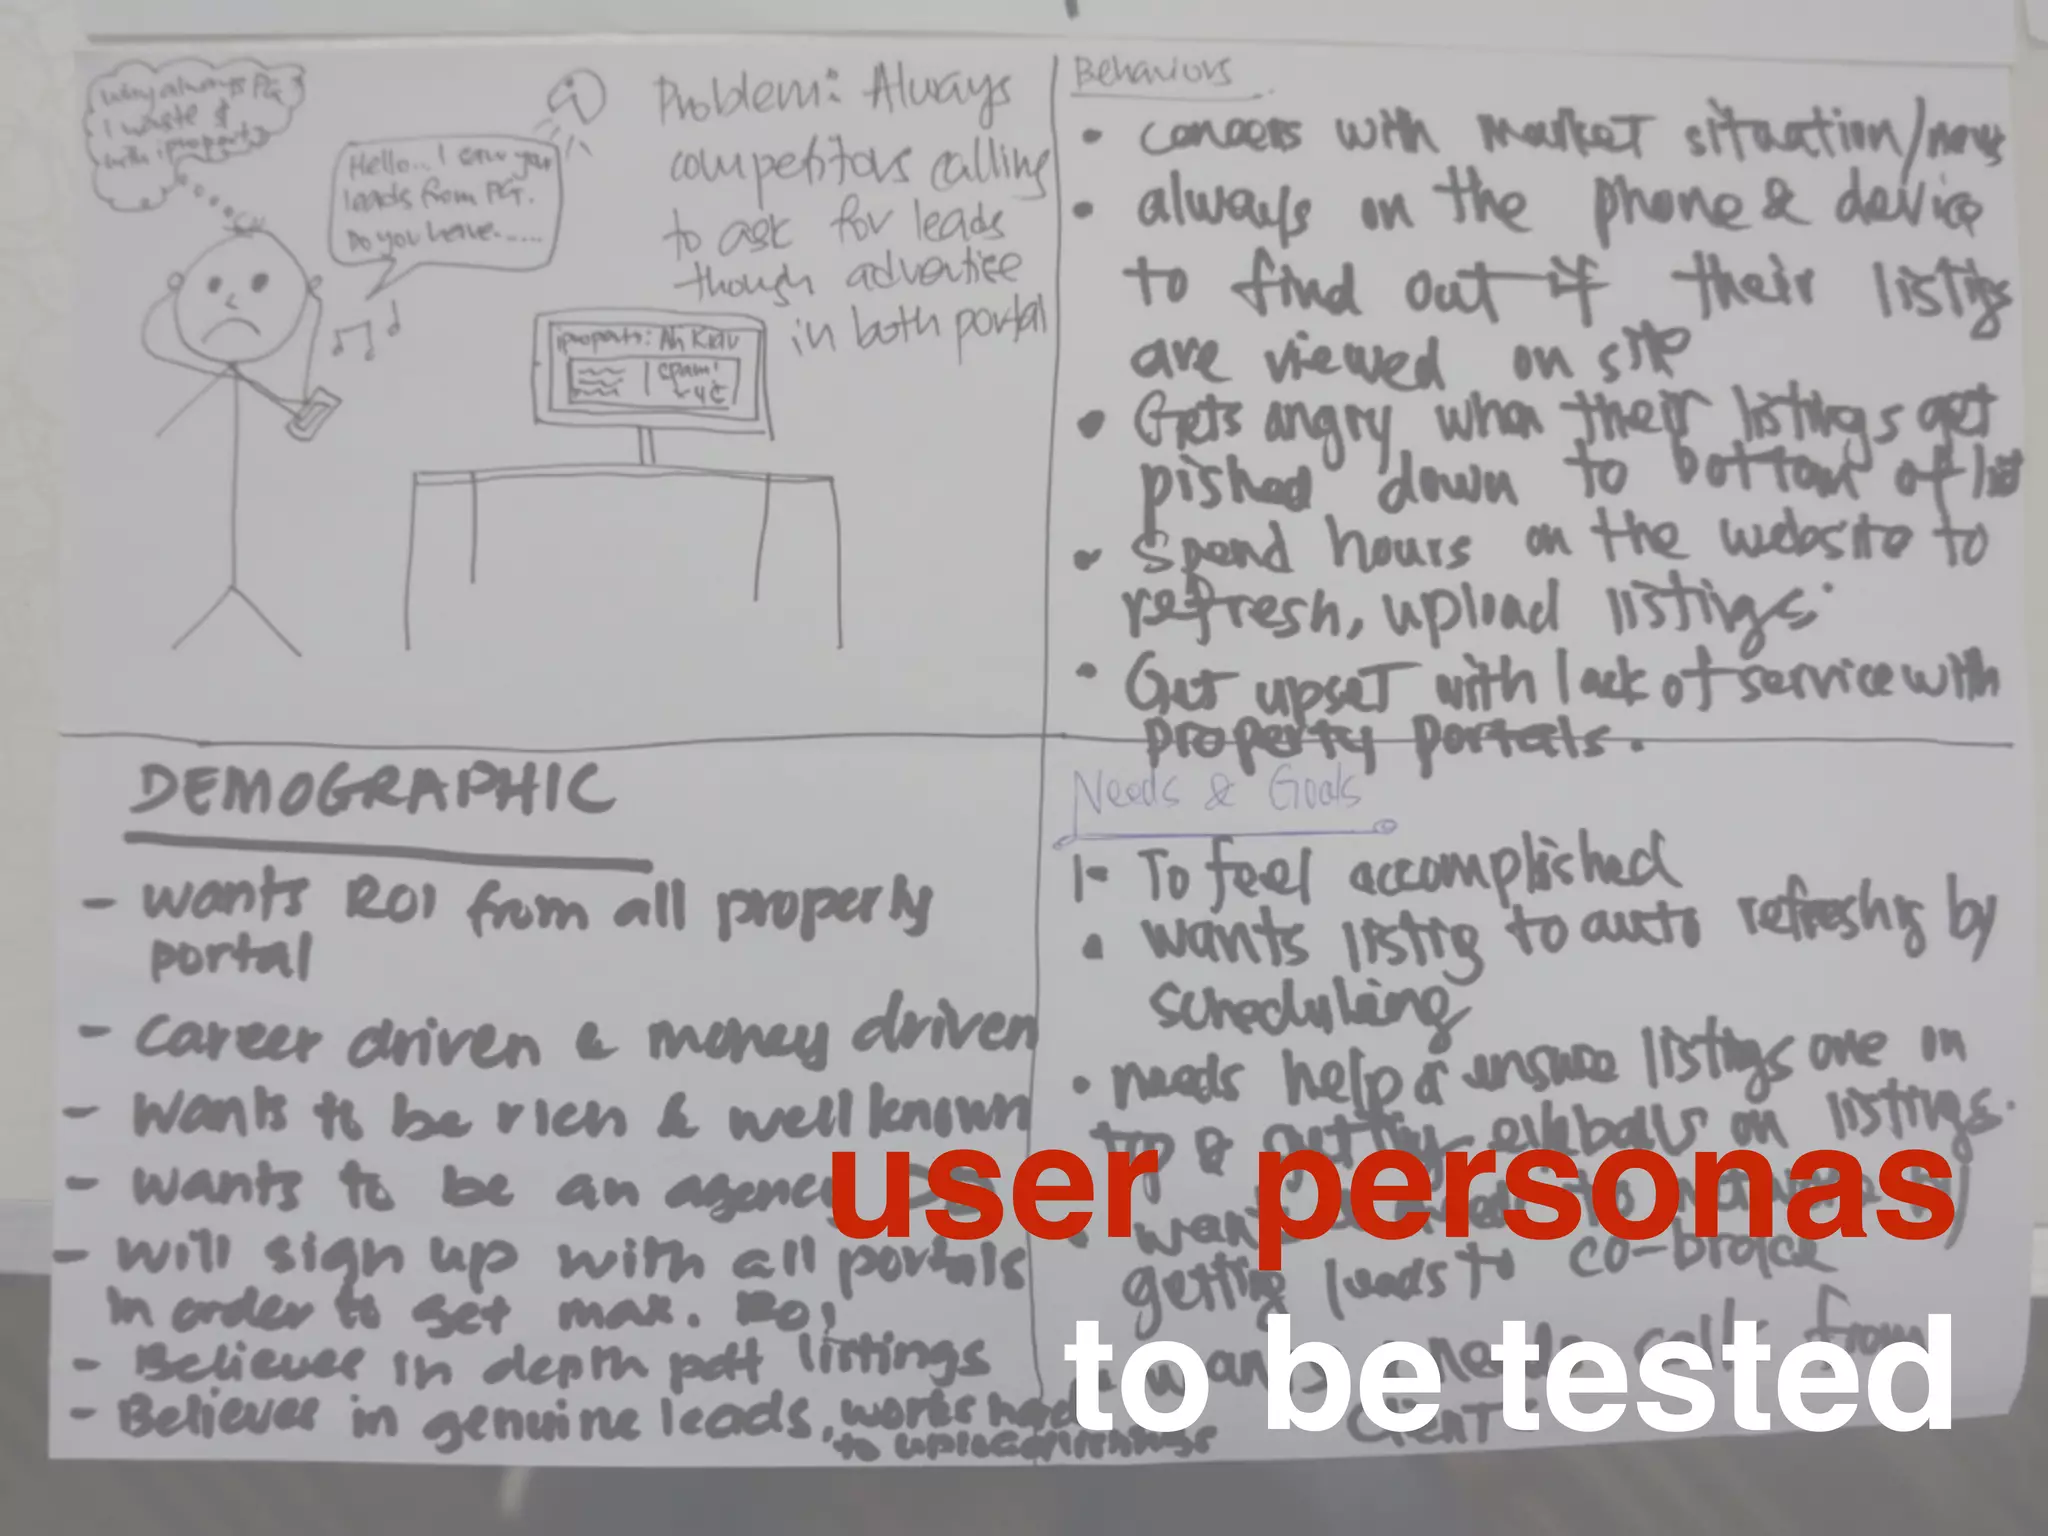 why always PG
I waste $
with iproperty
Hello.. I saw your
leads from PG.
Do you have......
Problem: Always
competitors calling
to ask for leads
though advertise
in both portal
iproperty:
Behaviors
• concers with market situation/news
• always on the phone & device
to find out if their listigs
are viewed on site
• Gets angry when their listings get
pished down to bottom of list
• Spend hours on the website to
refresh, upload listings.
• Get upset with lack of service with
property portals.
DEMOGRAPHIC
- wants ROI from all property
portal
- career driven & money driven
- wants to be rich & well known
- wants to be an agency
- will sign up with all portals
in order to get max. ROI
- Believes in depth listings
- Believes in genuine leads, works hard
to upload listings
Needs & Goals
1- To feel accomplished
• wants listig to auto refreshig by
scheduling
• needs help & ensure listings are on
top & getting eyeballs on listings.
• want
getting leads to co-broke
wants needs calls from
client
user personas
to be tested